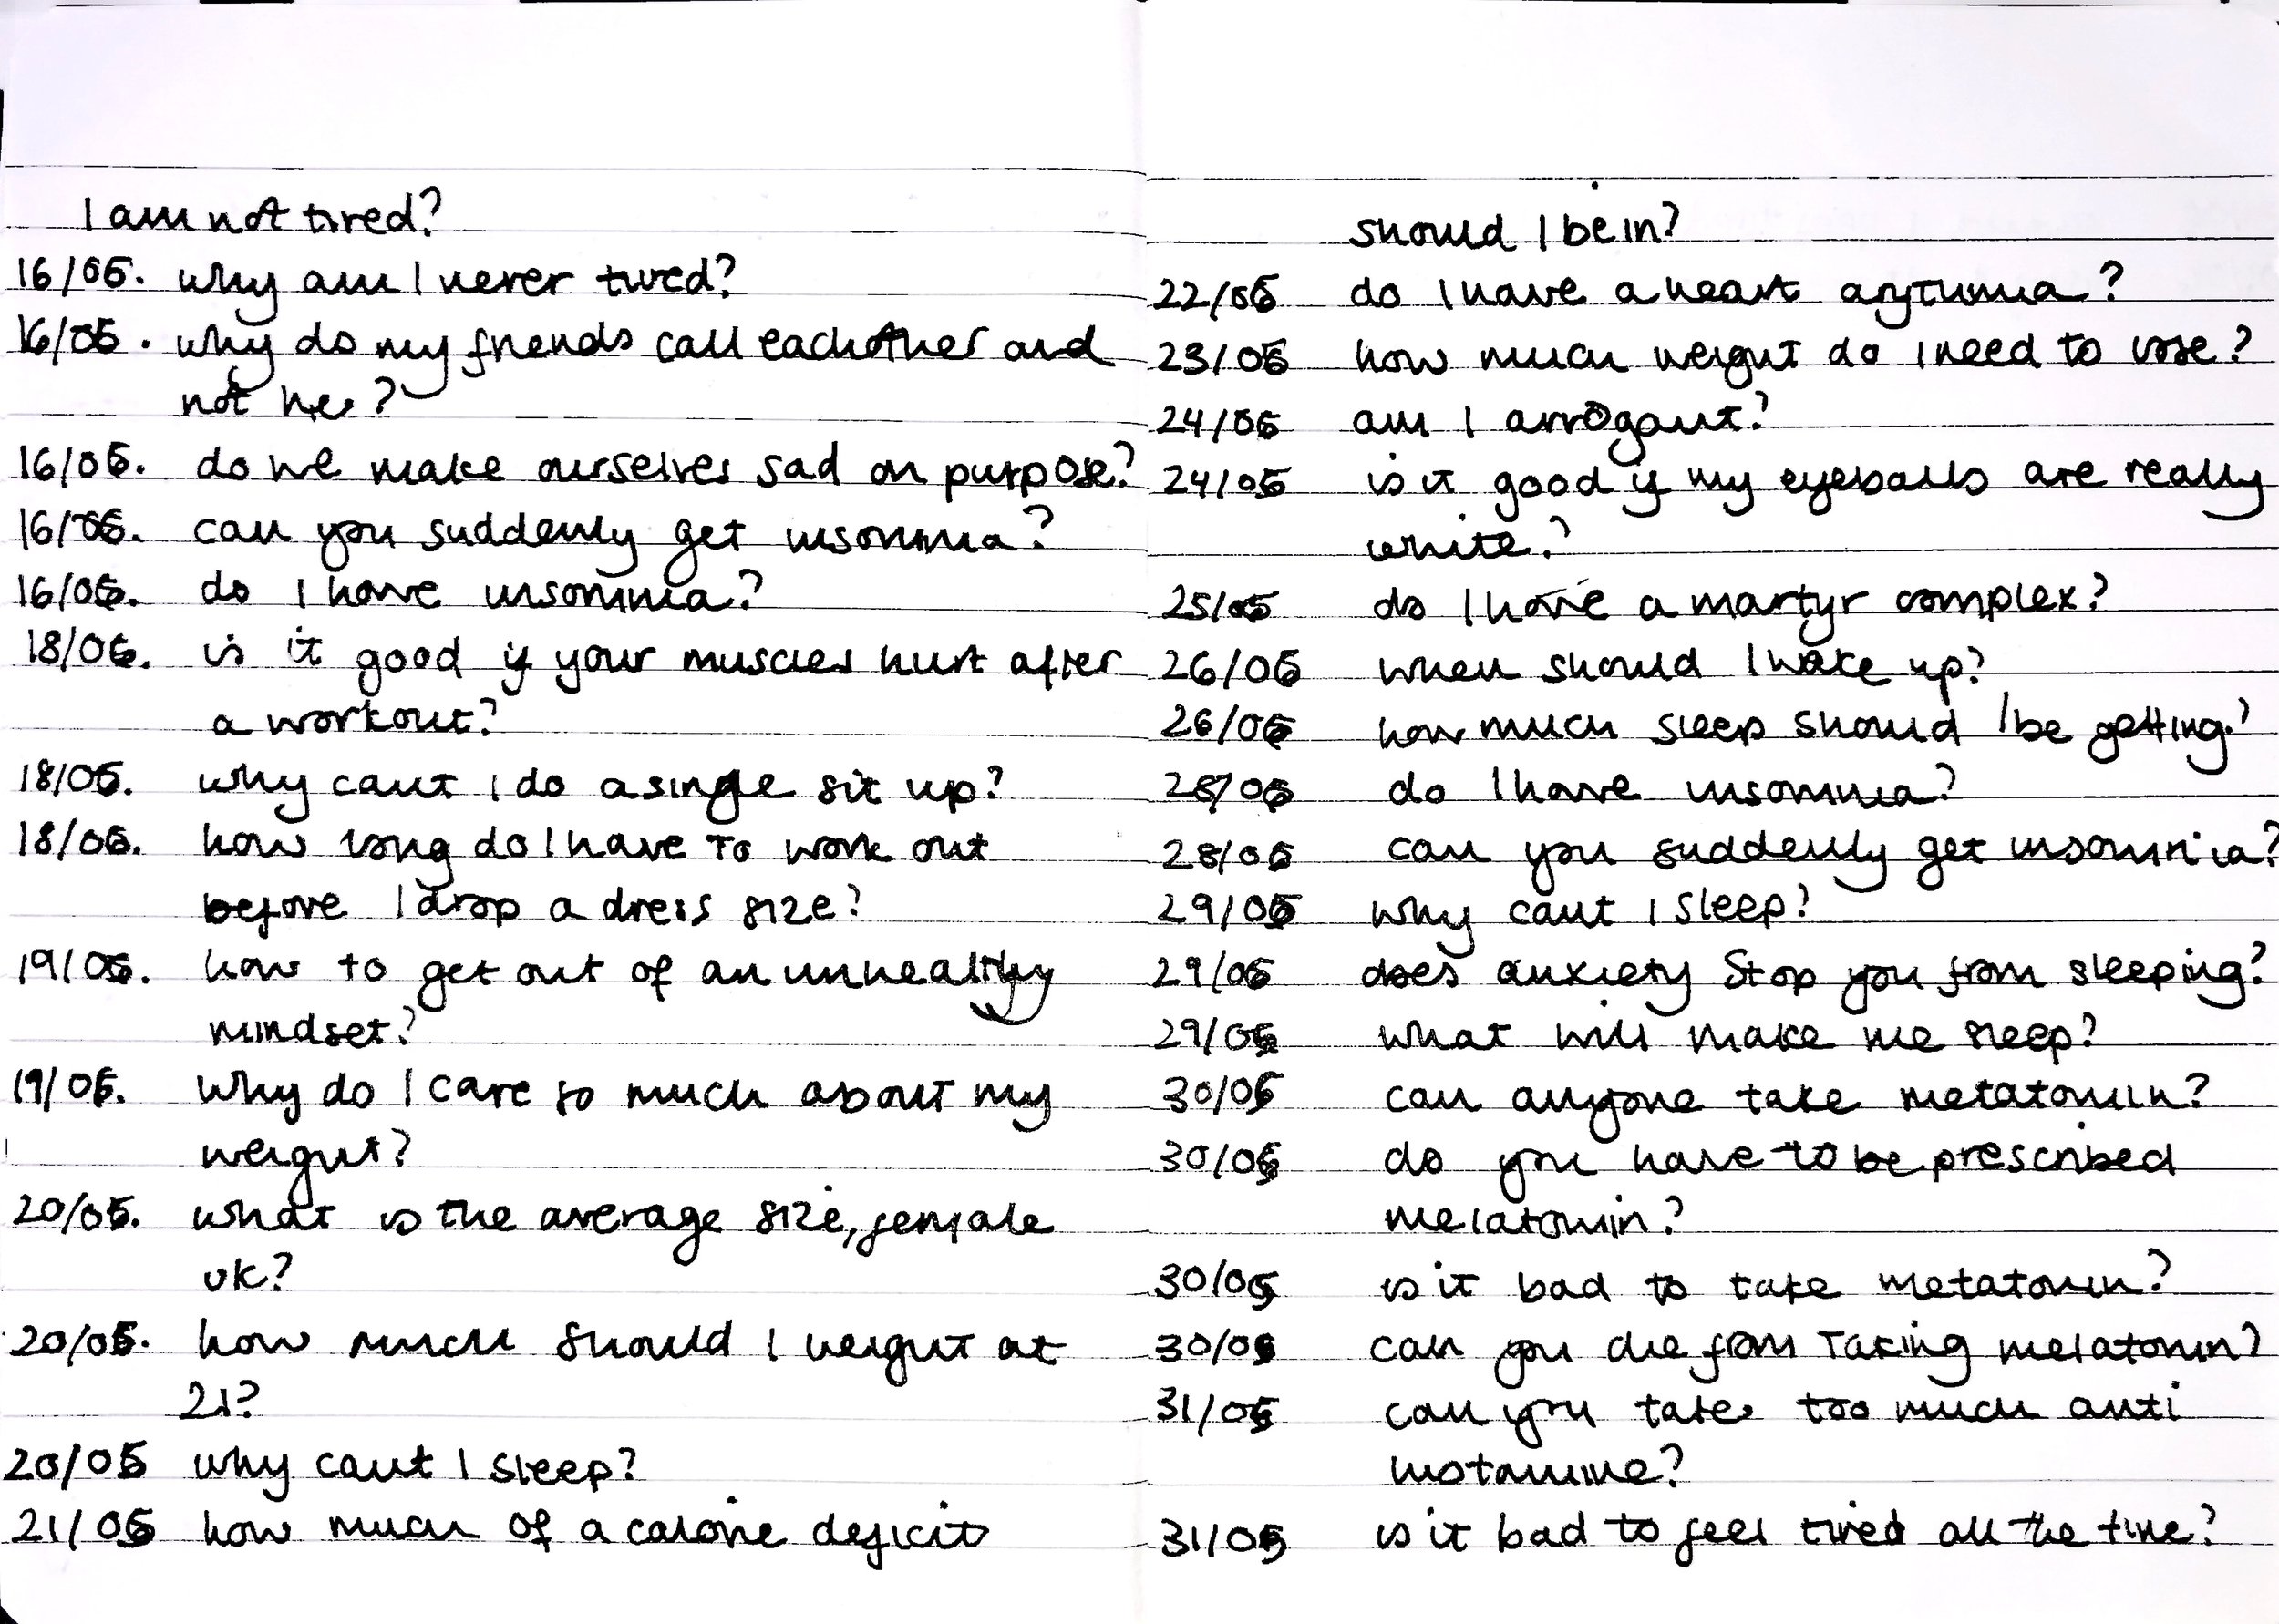 I am not tired?
16/05. why am I never tired?
16/05. why do my friends call eachother and
not me?
16/05. do we make ourselves sad on purpose?
16/05. can you suddenly get insomnia?
16/05. do I have insomnia?
18/05. is it good if your muscles hurt after
a workout?
18/05. why cant I do a single sit up?
18/05. how long do I have to work out
before I drop a dress size?
19/05. how to get out of an unhealthy
mindset?
19/05. why do I care so much about my
weight?
20/05. what is the average size, female
uk?
20/05. how much should I weight at
21?
20/05 why cant I sleep?
21/05 how much of a calorie deficit
should I be in?
22/05 do I have a heart arythmia?
23/05 how much weight do I need to lose?
24/05 am I arrogant?
24/05 is it good if my eyeballs are really
white?
25/05 do I have a martyr complex?
26/05 when should I wake up?
26/05 how much sleep should I be getting?
28/05 do I have insomnia?
28/05 can you suddenly get insomnia?
29/05 why cant I sleep?
29/05 does anxiety stop you from sleeping?
29/05 what will make me sleep?
30/05 can anyone take metatonin?
30/05 do you have to be prescribed
melatonin?
30/05 is it bad to take metatonin?
30/05 can you die from taking melatonin?
31/05 can you take too much anti
histamine?
31/05 is it bad to feel tired all the time?